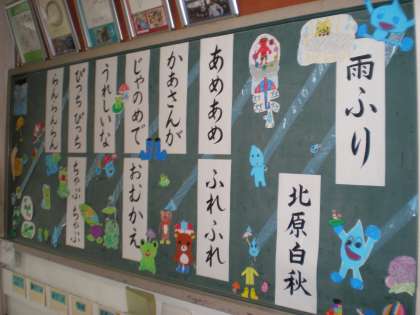 雨ふり
北原白秋
あめあめ
ふれふれ
かあさんが
じゃのめで
おむかえ
うれしいな
ぴっちぴっち
ちゃぷちゃぷ
らんらんらん